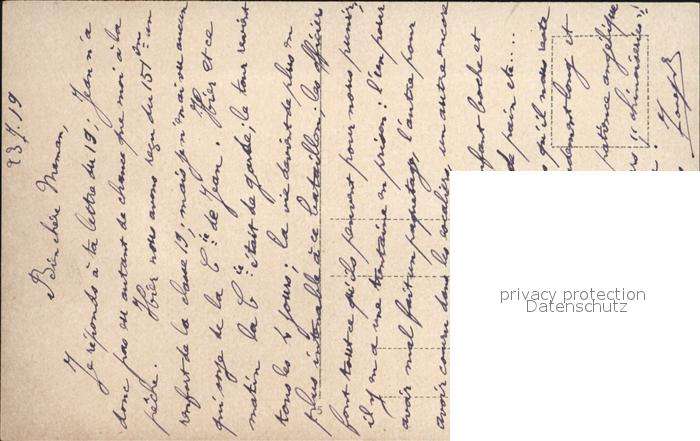 23.7.19
Bien chère Maman,
Je réponds à ta lettre du 19; Jean n'a
donc pas eu autant de chance que moi à la
pêche. Hier nous avons reçu du 151ème un
renfort de la classe 19; mais je n'ai vu aucun
qui soye de la Cie de Jean. Hier et ce
matin la Cie était de garde; le tour revient
tous les 4 jours; la vie devient de plus en
plus intenable à ce bataillon; les officiers
font tout ce qu'ils peuvent pour nous punir;
il y en a une trentaine en prison: l'un pour
avoir mal fait un paquetage, l'autre pour
avoir couru dans les escaliers, un autre encore
boche et
de pain etc...
qu'il nous reste
long et
patience angélique
"chinoiseries"!
privacy protection
Datenschutz